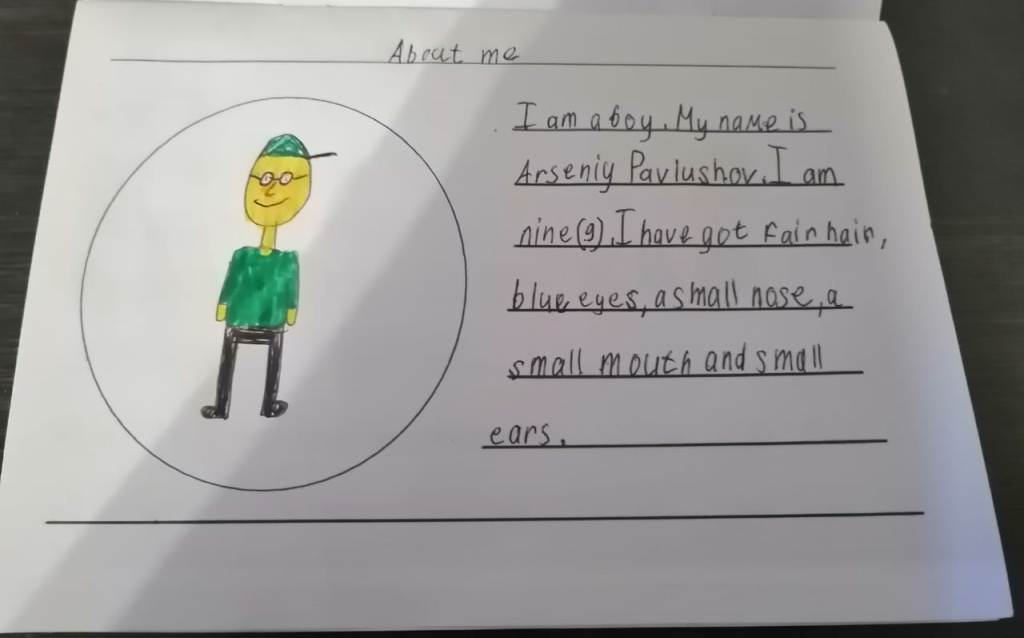 About me
I am a boy. My name is
Arseniy Pavlushov. I am
nine (9). I have got fair hair,
blue eyes, a small nose, a
small mouth and small
ears.